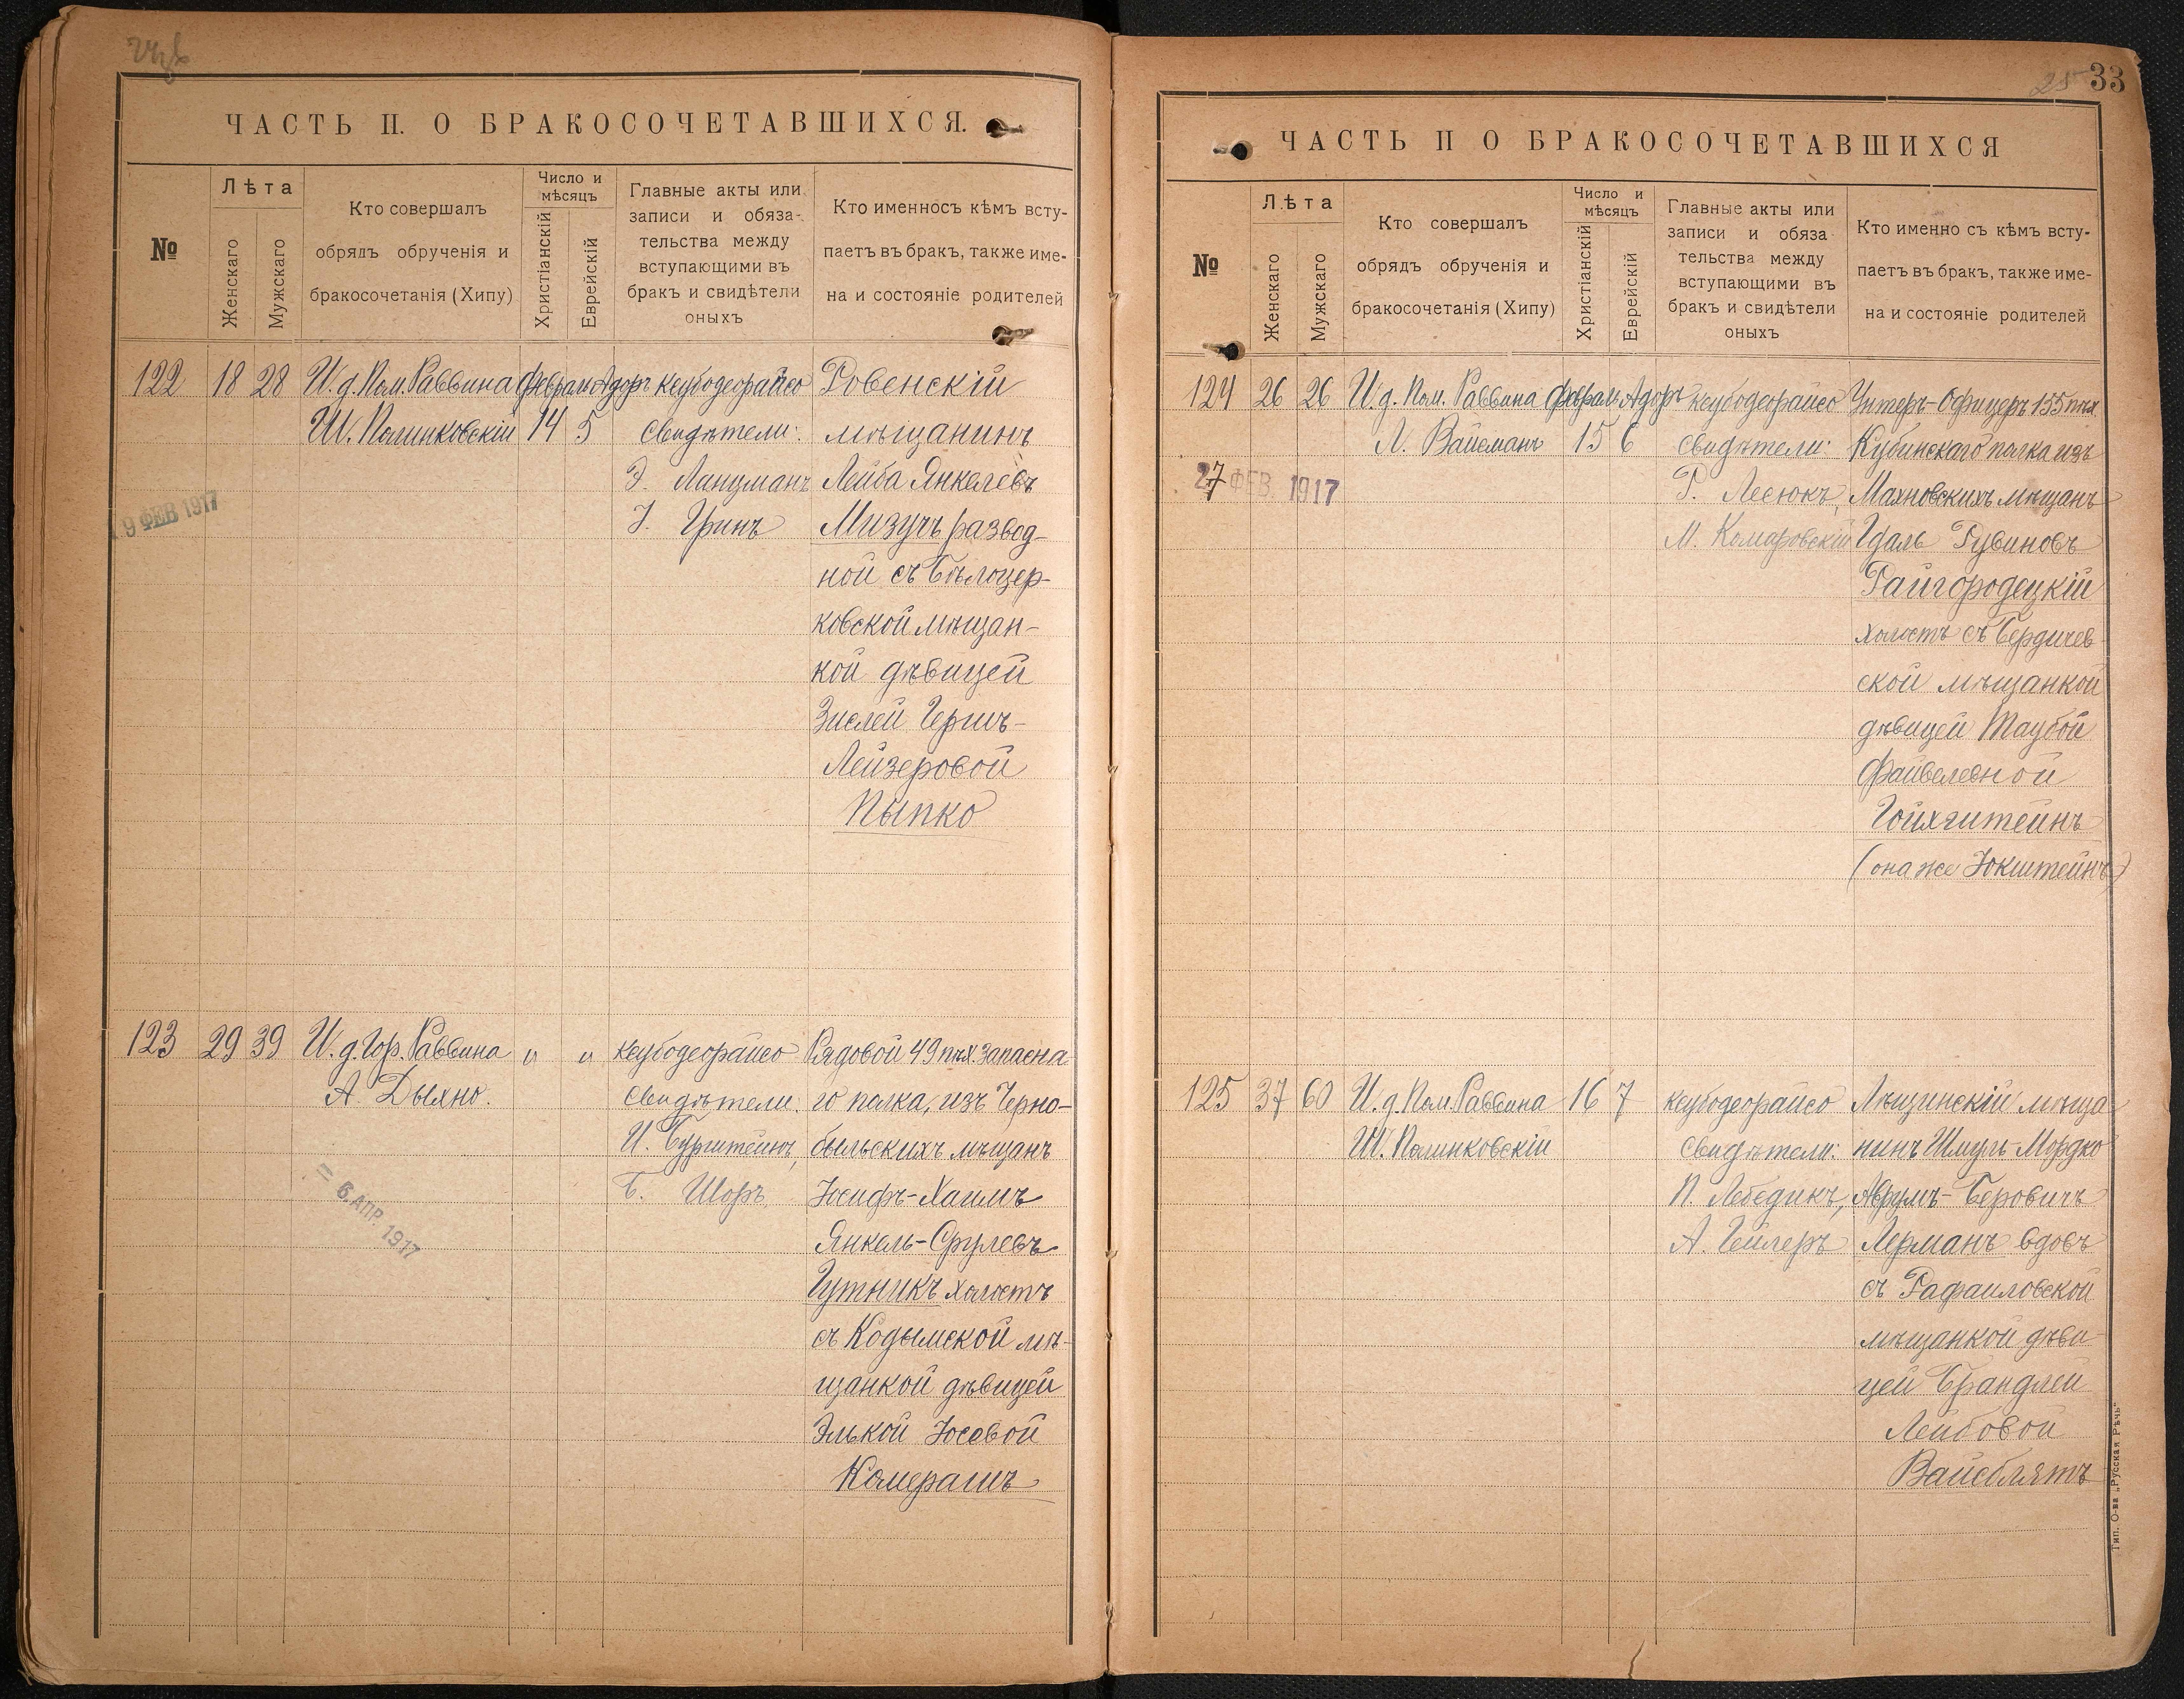 ЧАСТЬ II. О БРАКОСОЧЕТАВШИХСЯ.
№
Лѣта
Женскаго
Мужскаго
Кто совершалъ
обрядъ обрученія и
бракосочетанія (Хипу)
Число и
мѣсяцъ
Христіанскій
Еврейскій
Главные акты или
записи и обяза-
тельства между
вступающими въ
бракъ и свидѣтели
оныхъ
Кто именносъ кѣмъ всту-
паетъ въ бракъ, также име-
на и состояніе родителей
122
18
28
И. д. Пом. Раввина
Ш. Полинковскій
Феврал
14
Адоръ
5
ксубодеорайсо
Свидѣтели:
Э. Ланцманъ
І. Гринъ
Ровенскій
мѣщанинъ
Лейба Янкелевъ
Мизучъ развод-
ной съ Бѣлоцер-
ковской мѣщан-
кой дѣвицей
Зислей Герш-
Лейзеровой
Пыпко
9 ФЕВ 1917
123
29
39
И. д. Гор. Раввина
А. Дыхно.
"
"
ксубодеорайсо
Свидѣтели:
И. Бурштейнъ,
Б. Шоръ
Рядовой 49 пѣх. запасна-
го полка, изъ Черно-
быльскихъ мѣщанъ
Іосифъ-Хаимъ
Янкель-Срулевъ
Гутникъ холостъ
съ Кодымской мѣ-
щанкой дѣвицей
Элькой Іосевой
Комерашъ
= 6. АПР. 1917
33
25
ЧАСТЬ II О БРАКОСОЧЕТАВШИХСЯ
№
Лѣта
Женскаго
Мужскаго
Кто совершалъ
обрядъ обрученія и
бракосочетанія (Хипу)
Число и
мѣсяцъ
Христіанскій
Еврейскій
Главные акты или
записи и обяза
тельства между
вступающими въ
бракъ и свидѣтели
оныхъ
Кто именно съ кѣмъ всту-
паетъ въ бракъ, также име-
на и состояніе родителей
124
26
26
И. д. Пом. Раввина
Л. Вайсманъ
Феврал
15
Адоръ
6
ксубодеорайсо
Свидѣтели:
Р. Лесюкъ,
М. Комаровскій
Унтеръ-Офицеръ 155 пѣх
Кубинскаго полка изъ
Махновскихъ мѣщанъ
Идаль Рувиновъ
Райгородецкій
холостъ съ Бердичев-
ской мѣщанкой
дѣвицей Таубой
Файвелевной
Гойхштейнъ
(она же Юкштейнъ)
27 ФЕВ. 1917
125
37
60
И. д. Пом. Раввина
Ш. Полинковскій
16
7
ксубодеорайсо
Свидѣтели:
П. Лебедикъ,
А. Гейлеръ
Лѣщинскій мѣща-
нинъ Шмуль-Мордко
Аврумъ-Беровичъ
Лерманъ вдовъ
съ Рафаиловской
мѣщанкой дѣви-
цей Брандлей
Лейбовой
Вайсблятъ
Тип. О-ва „Русская Рѣчь"